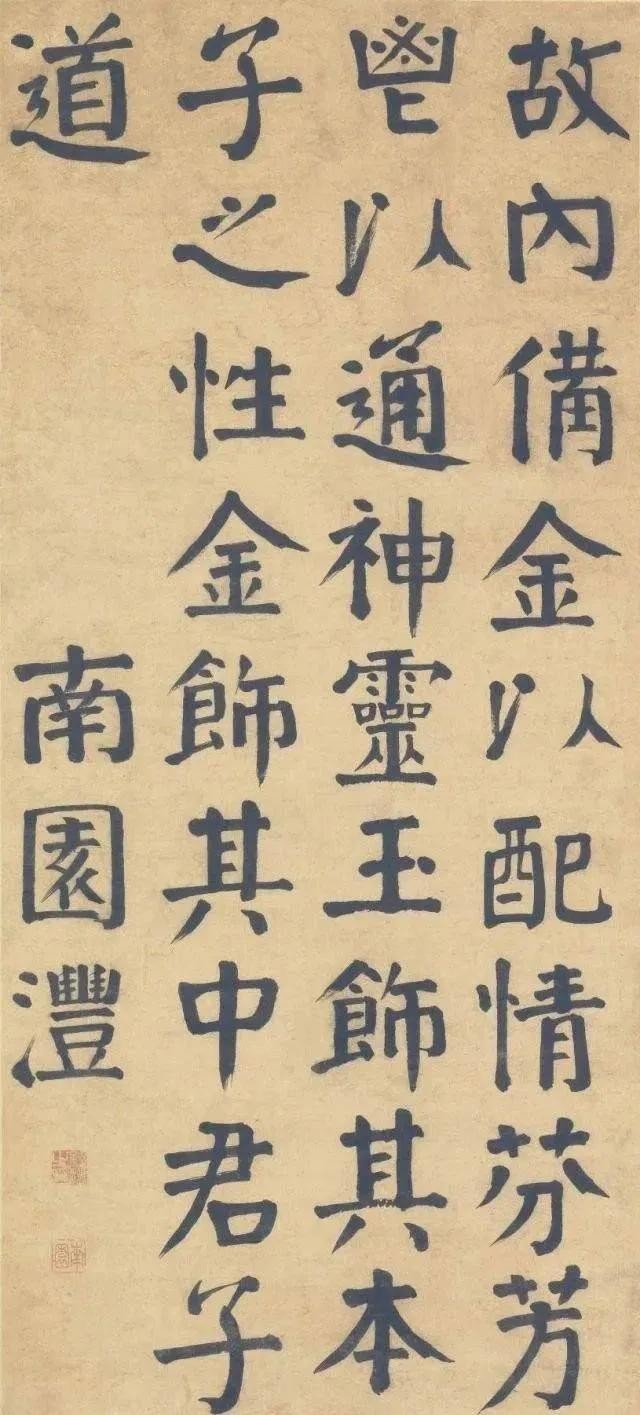 故內備金以配情芬芳
鬯以通神靈玉飾其本
子之性金飾其中君子
道
南園灃